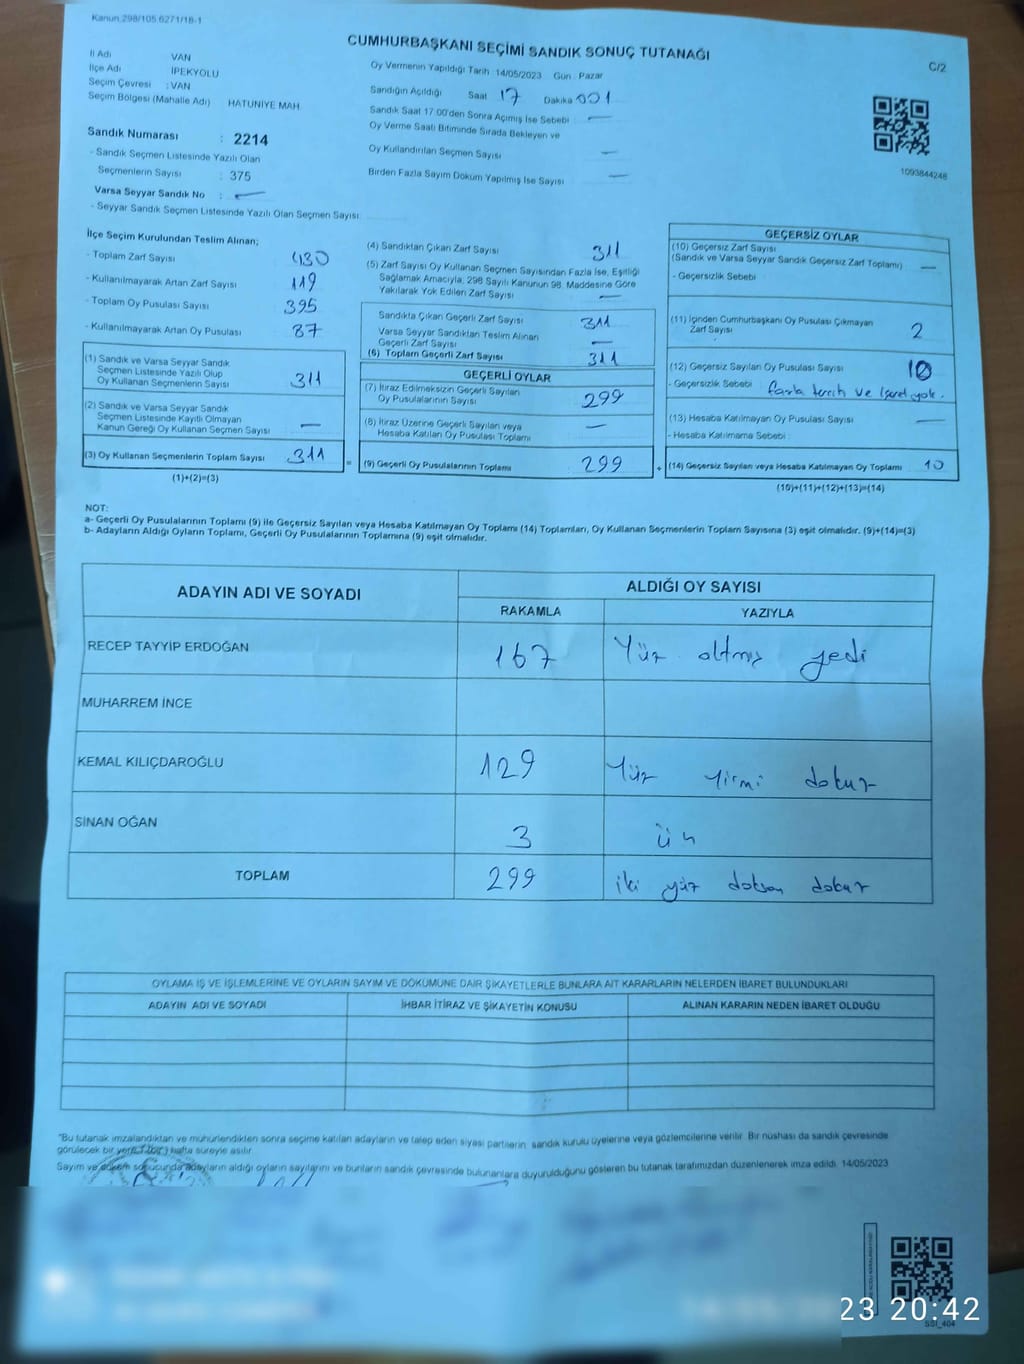 Kanun 298/105.6271/18-1
CUMHURBAŞKANI SEÇİMİ SANDIK SONUÇ TUTANAĞI
C/2
İl Adı VAN
İlçe Adı İPEKYOLU
Seçim Çevresi : VAN
Seçim Bölgesi (Mahalle Adı) HATUNİYE MAH.
Sandık Numarası : 2214
- Sandık Seçmen Listesinde Yazılı Olan
Seçmenlerin Sayısı : 375
Varsa Seyyar Sandık No : —
- Seyyar Sandık Seçmen Listesinde Yazılı Olan Seçmen Sayısı
Oy Vermenin Yapıldığı Tarih :14/05/2023 Gün : Pazar
Sandığın Açıldığı Saat 17 Dakika 001
Sandık Saat 17.00'den Sonra Açımış İse Sebebi : —
Oy Verme Saati Bitiminde Sırada Bekleyen ve
Oy Kullandırılan Seçmen Sayısı —
Birden Fazla Sayım Döküm Yapılmış İse Sayısı —
1093844248
İlçe Seçim Kurulundan Teslim Alınan;
- Toplam Zarf Sayısı 430
- Kullanılmayarak Artan Zarf Sayısı 119
- Toplam Oy Pusulası Sayısı 395
- Kullanılmayarak Artan Oy Pusulası 87
(1) Sandık ve Varsa Seyyar Sandık
Seçmen Listesinde Yazılı Olup
Oy Kullanan Seçmenlerin Sayısı 311
(2) Sandık ve Varsa Seyyar Sandık
Seçmen Listesinde Kayıtlı Olmayan
Kanun Gereği Oy Kullanan Seçmen Sayısı —
(3) Oy Kullanan Seçmenlerin Toplam Sayısı 311
(1)+(2)=(3)
(4) Sandıktan Çıkan Zarf Sayısı 311
(5) Zarf Sayısı Oy Kullanan Seçmen Sayısından Fazla İse, Eşitliği
Sağlamak Amacıyla, 298 Sayılı Kanunun 98. Maddesine Göre
Yakılarak Yok Edilen Zarf Sayısı —
Sandıkta Çıkan Geçerli Zarf Sayısı 311
Varsa Seyyar Sandıktan Teslim Alınan
Geçerli Zarf Sayısı —
(6) Toplam Geçerli Zarf Sayısı 311
GEÇERLİ OYLAR
(7) İtiraz Edilmeksizin Geçerli Sayılan
Oy Pusulalarının Sayısı 299
(8) İtiraz Üzerine Geçerli Sayılan veya
Hesaba Katılan Oy Pusulası Toplamı —
= (9) Geçerli Oy Pusulalarının Toplamı 299
GEÇERSİZ OYLAR
(10) Geçersiz Zarf Sayısı
(Sandık ve Varsa Seyyar Sandık Geçersiz Zarf Toplamı) —
- Geçersizlik Sebebi
(11) İçinden Cumhurbaşkanı Oy Pusulası Çıkmayan
Zarf Sayısı 2
(12) Geçersiz Sayılan Oy Pusulası Sayısı 10
- Geçersizlik Sebebi : fazla tercih ve işaret yok.
(13) Hesaba Katılmayan Oy Pusulası Sayısı —
- Hesaba Katılmama Sebebi :
+ (14) Geçersiz Sayılan veya Hesaba Katılmayan Oy Toplamı 10
(10)+(11)+(12)+(13)=(14)
NOT:
a- Geçerli Oy Pusulalarının Toplamı (9) ile Geçersiz Sayılan veya Hesaba Katılmayan Oy Toplamı (14) Toplamları, Oy Kullanan Seçmenlerin Toplam Sayısına (3) eşit olmalıdır. (9)+(14)=(3)
b- Adayların Aldığı Oyların Toplamı, Geçerli Oy Pusulalarının Toplamına (9) eşit olmalıdır.
ADAYIN ADI VE SOYADI ALDIĞI OY SAYISI
RAKAMLA YAZIYLA
RECEP TAYYİP ERDOĞAN 167 Yüz altmış yedi
MUHARREM İNCE
KEMAL KILIÇDAROĞLU 129 Yüz Yirmi dokuz
SİNAN OĞAN 3 üç
TOPLAM 299 iki yüz doksan dokuz
OYLAMA İŞ VE İŞLEMLERİNE VE OYLARIN SAYIM VE DÖKÜMÜNE DAİR ŞİKAYETLERLE BUNLARA AİT KARARLARIN NELERDEN İBARET BULUNDUKLARI
ADAYIN ADI VE SOYADI İHBAR İTİRAZ VE ŞİKAYETİN KONUSU ALINAN KARARIN NEDEN İBARET OLDUĞU
"Bu tutanak imzalandıktan ve mühürlendikten sonra seçime katılan adayların ve talep eden siyasi partilerin sandık kurulu üyelerine veya gözlemcilerine verilir. Bir nüshası da sandık çevresinde
görülecek bir yere 1 (bir) hafta süreyle asılır.
Sayım ve döküm sonucunda adayların aldığı oyların sayılarını ve bunların sandık çevresinde bulunanlara duyurulduğunu gösteren bu tutanak tarafımızdan düzenlenerek imza edildi. 14/05/2023
23 20:42